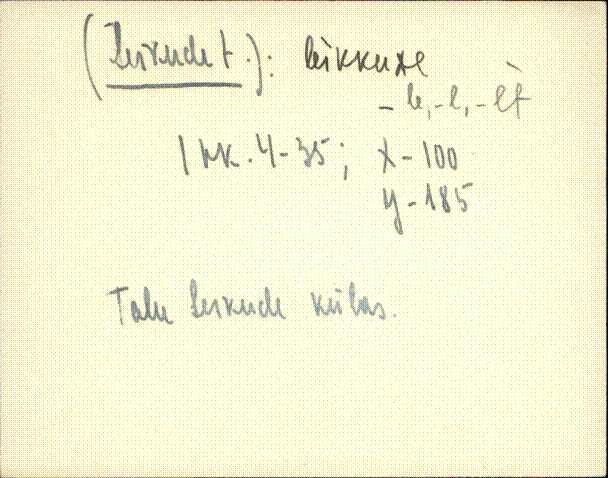 (Leikude t.): leikkuᴅe
- le, -l, -lt
1 hk. 4-35; x-100
y-185
Talu Leikude külas.